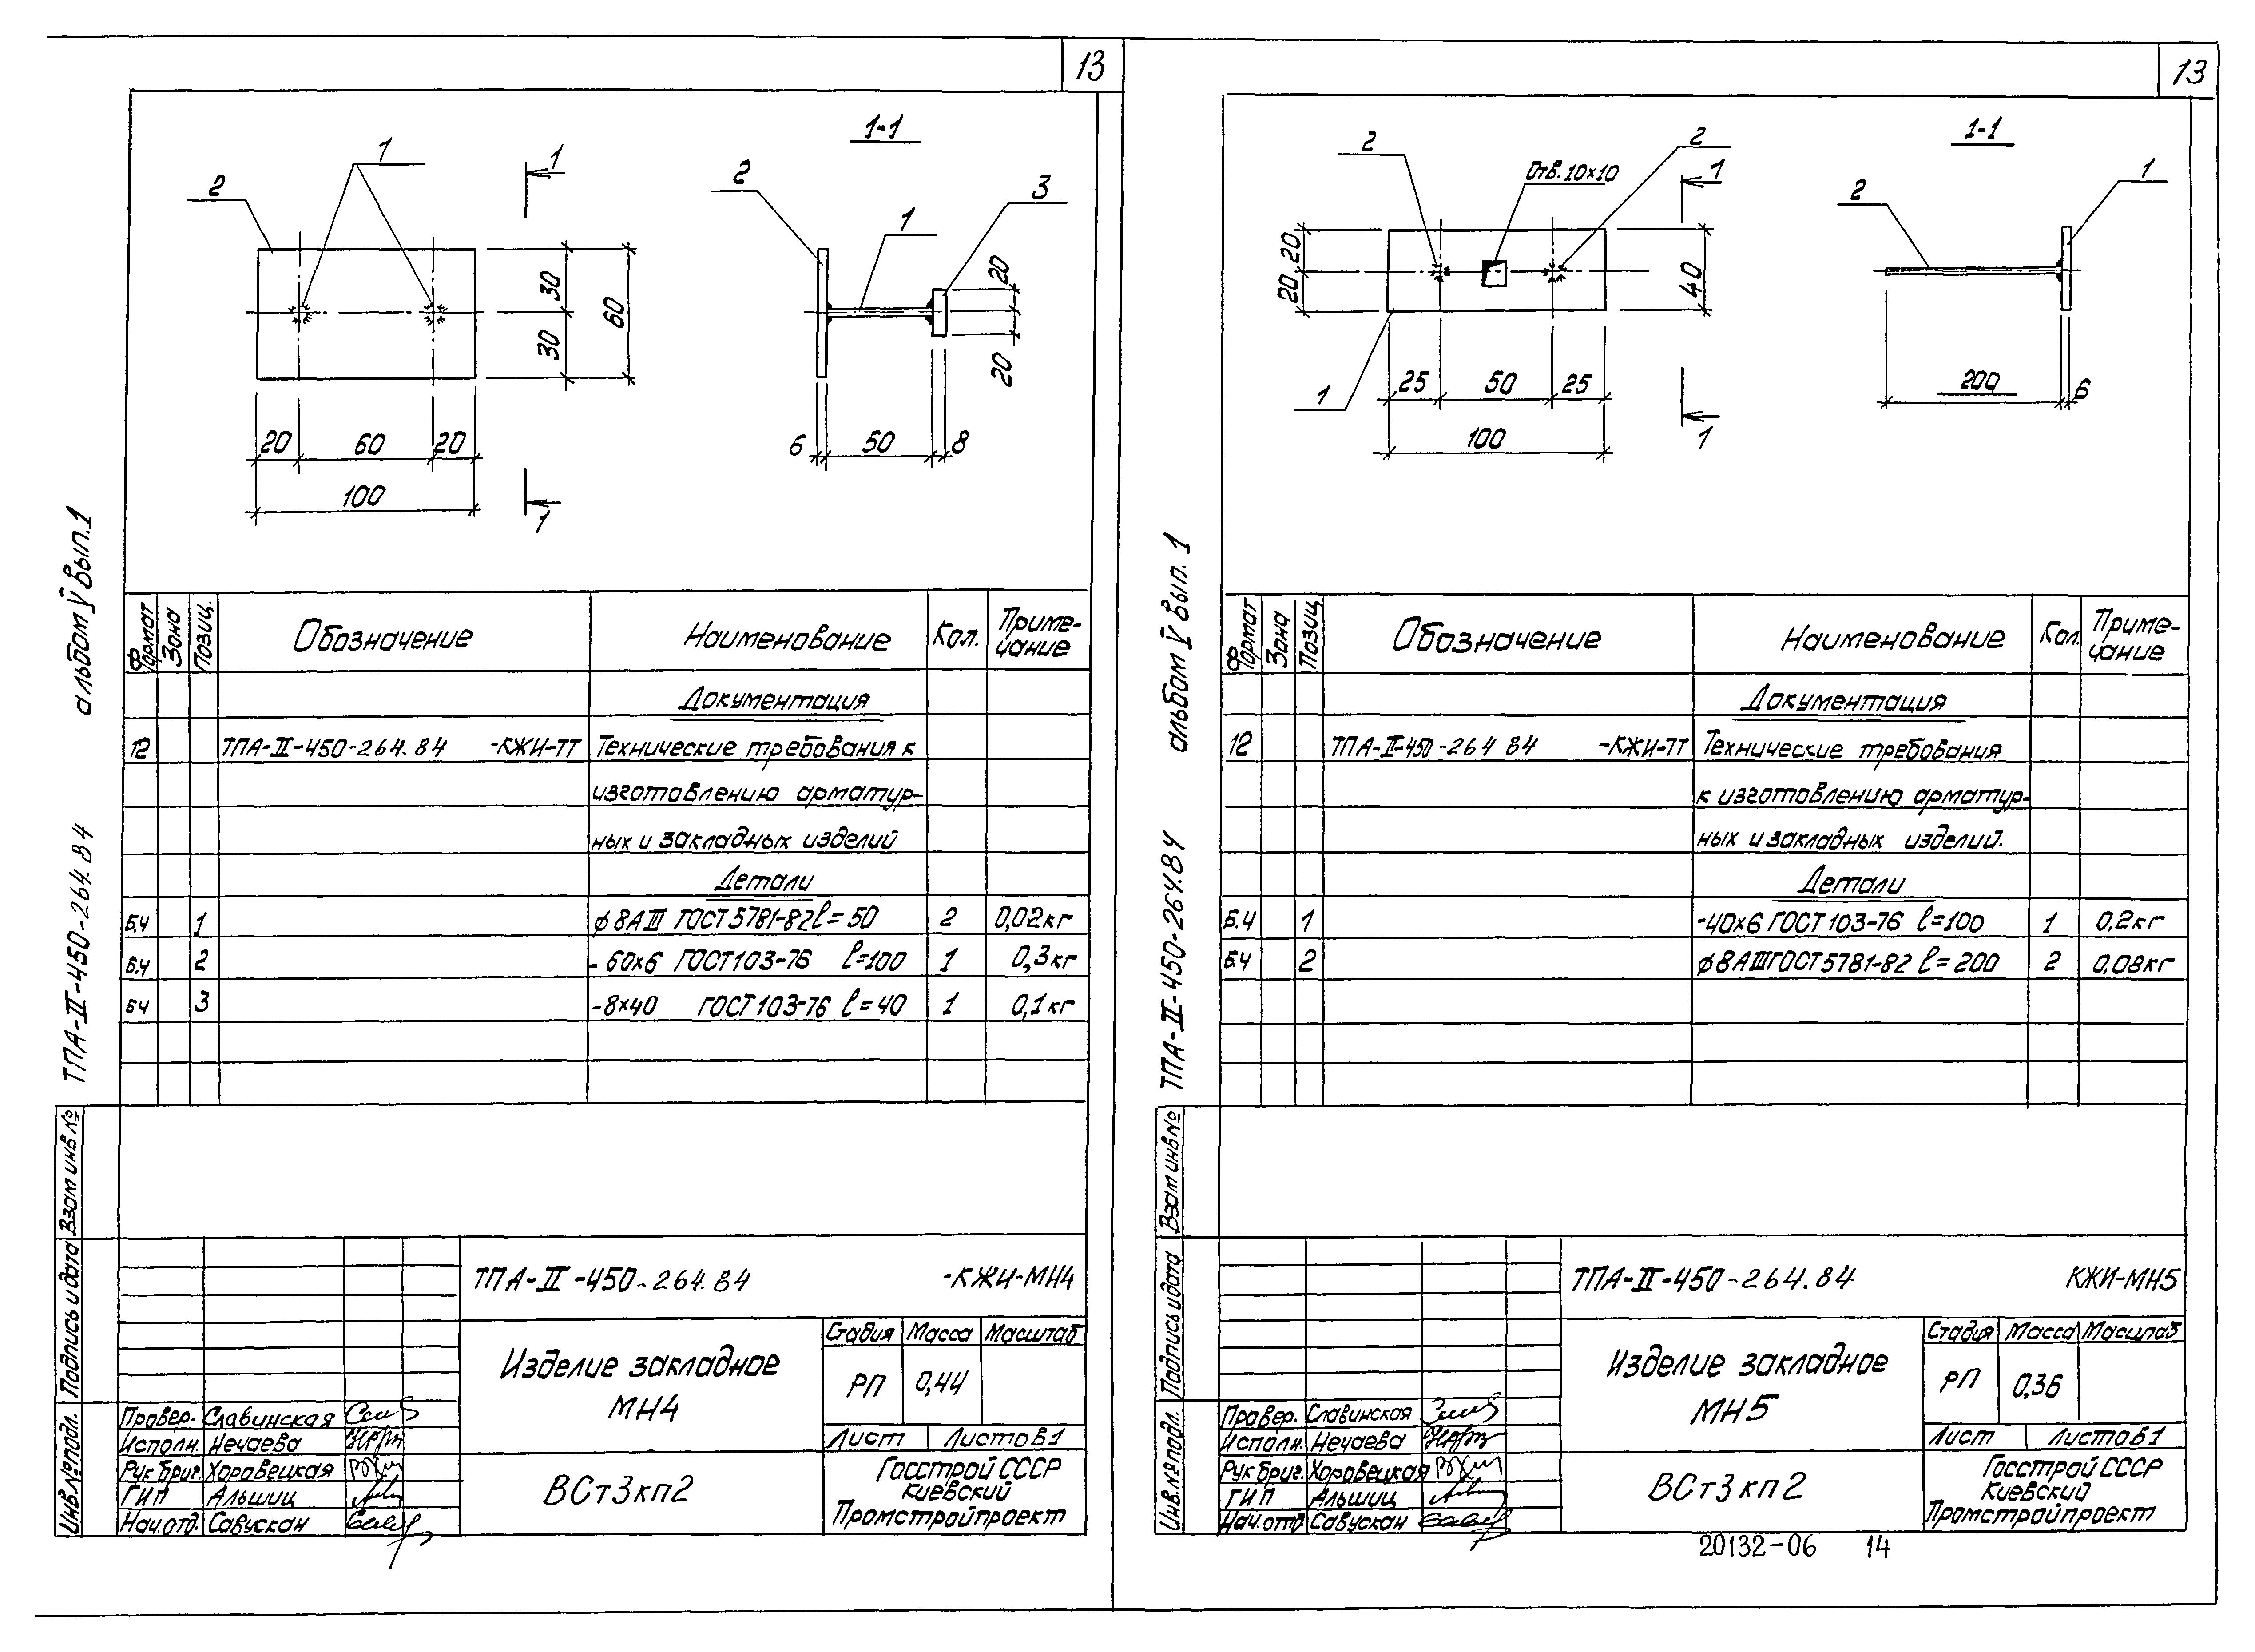 13
1-1
1
2
1
2
3
1
30
30
60
20
20
20 60 20
100
6 50 8
1
альбом V вып.1
ТПА-II-450-264.84
Формат Зона Позиц. Обозначение Наименование Кол. Приме-
чание
Документация
12 ТПА-II-450-264.84 -КЖИ-ТТ Технические требования к
изготовлению арматур-
ных и закладных изделий
Детали
Б.Ч 1 ϕ8АIII ГОСТ 5781-82 ℓ=50 2 0,02кг
Б.Ч 2 -60х6 ГОСТ 103-76 ℓ=100 1 0,3кг
БЧ 3 -8х40 ГОСТ 103-76 ℓ=40 1 0,1кг
Взам инв №
Подпись и дата
Инв.№ подл.
ТПА-II-450-264.84 -КЖИ-МН4
Изделие закладное
МН4
Стадия Масса Масштаб
РП 0,44
Лист Листов 1
Провер. Славинская
Исполн. Нечаева
Рук бриг. Хоровецкая
ГИП Альшиц
Нач.отд. Савускан
ВСт3кп2
Госстрой СССР
Киевский
Промстройпроект
13
1-1
2
2
Отв.10х10
1
2
1
20
20
40
25 50 25
100
1
1
200 6
альбом V вып. 1
ТПА-II-450-264.84
Формат Зона Позиц Обозначение Наименование Кол. Приме-
чание
Документация
12 ТПА-II-450-264 84 -КЖИ-ТТ Технические требования
к изготовлению арматур-
ных и закладных изделий.
Детали
Б.Ч 1 -40х6 ГОСТ 103-76 ℓ=100 1 0,2кг
Б.Ч 2 ϕ8АIII ГОСТ 5781-82 ℓ=200 2 0,08кг
Взам инв №
Подпись и дата
Инв.№ подл.
ТПА-II-450-264.84 КЖИ-МН5
Изделие закладное
МН5
Стадия Масса Масштаб
РП 0,36
Лист Листов 1
Провер. Славинская
Исполн. Нечаева
Рук бриг. Хоровецкая
ГИП Альшиц
Нач.отд Савускан
ВСт3кп2
Госстрой СССР
Киевский
Промстройпроект
20132-06 14